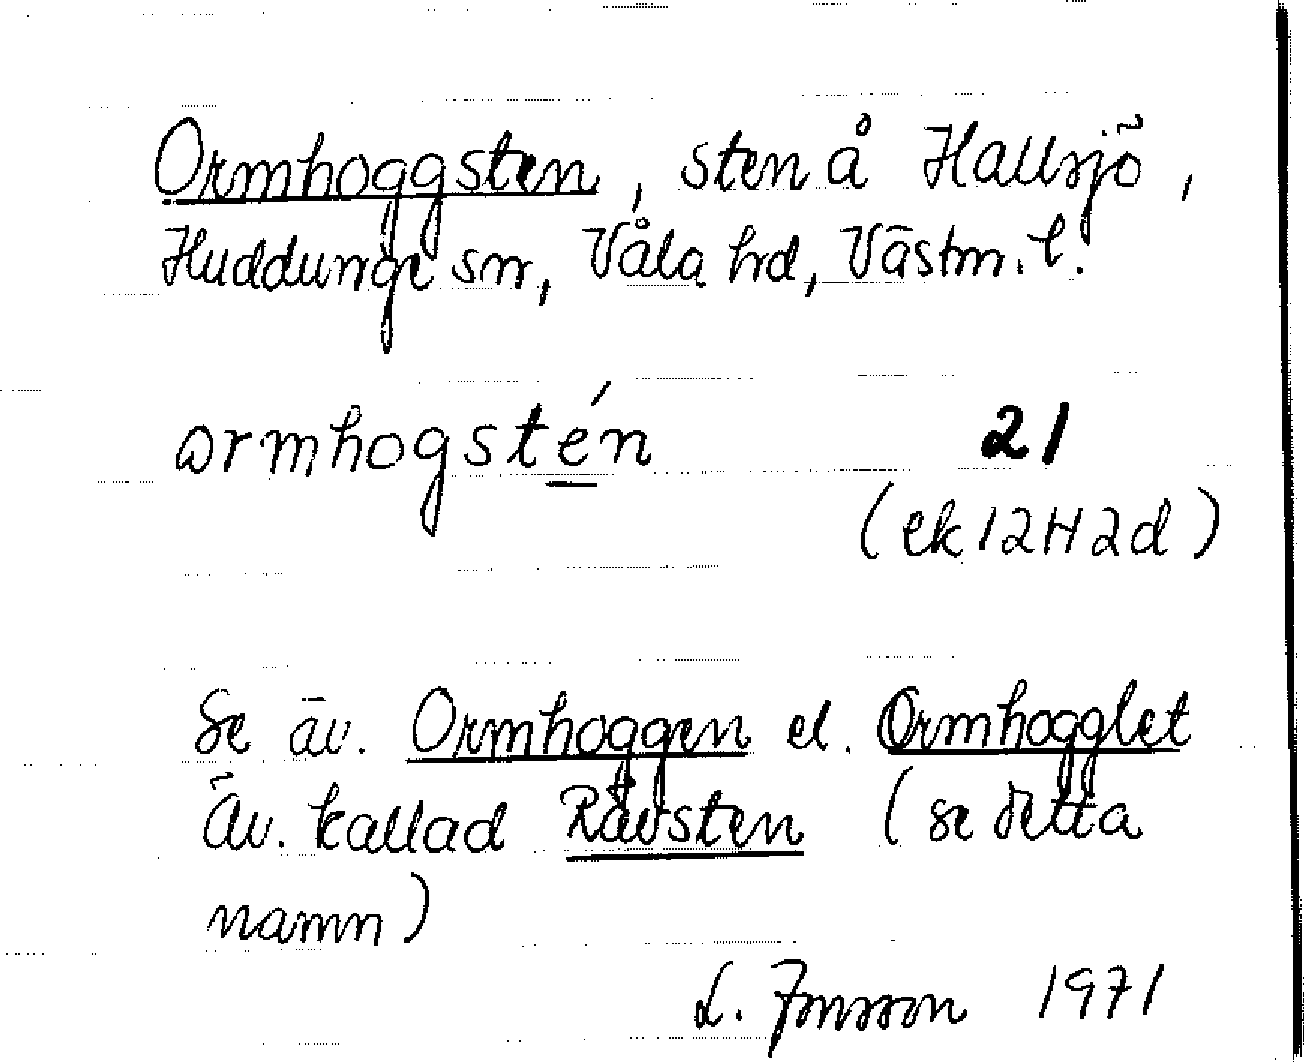 Ormhoggsten, sten å Hallsjö,
Huddunge sn, Våla hd, Västm. l.
ormhogstén 21
(ek 12H2d)
Se äv. Ormhoggen el. Ormhogglet
Äv. kallad Rävsten (se detta
namn)
L. Jonsson 1971